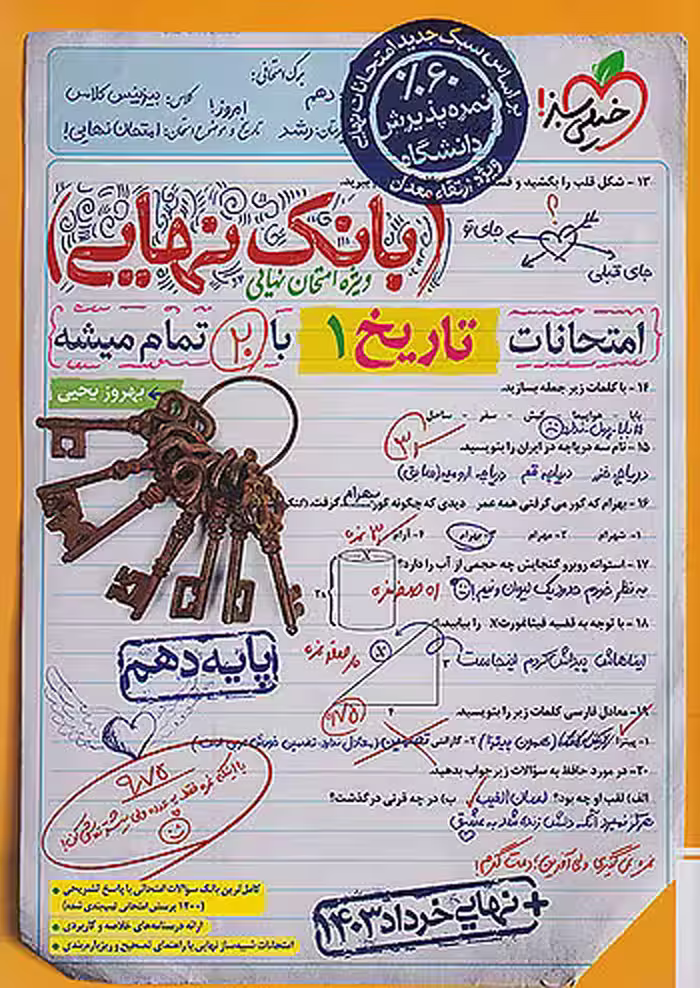 برگ امتحانی:
دهم
کلاس: بیزینس کلاس
امروز!
رشد
تاریخ و موضوع امتحان: امتحان نهایی!
بر اساس سبک جدید امتحانات نهایی
٪۶۰
نمره پذیرش
دانشگاه
ویژه ارتقاء معدل
خیلی سبز!
۱۳ - شکل قلب را بکشید و
ببرید.
؟
جای تو
جای قبلی
(بانک نهایی)
ویژه امتحان نهایی
امتحانات تاریخ ۱ با ۲۰ تمام میشه
بهروز یحیی
۱۴ - با کلمات زیر جمله بسازید.
بابا - هواپیما - کیش - سفر - ساحل
بابا پول نداره
۱۵ - نام سه دریاچه در ایران را بنویسید.
۳
دریاچه خزر دریاچه قم دریاچه ارومیه (سابق)
۱۶ - بهرام که گور می‌گرفتی همه عمر دیدی که چگونه گور بهرام گرفت.
۱- شهرام ۲- مهرام ۳- بهرام ۴- آرام
۳ نمره
۱۷ - استوانه روبرو گنجایش چه حجمی از آب را دارد؟
X
۲۰
به نظر خودم حدود یک لیوان و نیم
۱۸ - با توجه به قضیه فیثاغورث X را بیابید.
ایناهاش پیداش کردم اینجاست
X
۳
۴
۱۹ - معادل فارسی کلمات زیر را بنویسید.
۹/۷۵
۱- پیتزا
(همون پیتزا) ۲- گارانتی تضمین
۲۰- در مورد حافظ به سؤالات زیر جواب بدهید.
الف) لقب او چه بود؟ لسان الغیب ب) در چه قرنی درگذشت؟
هرگز نمیرد آنکه دلش زنده شد به عشق
نمره نمی‌گیری ولی آفرین! دمت گرم!
پایه دهم
۹/۷۵
با اینکه
کامل‌ترین بانک سوالات امتحانی با پاسخ تشریحی
(۱۲۰۰ پرسش امتحانی تیپ‌بندی شده)
ارائه درسنامه‌های خلاصه و کاربردی
امتحانات شبیه‌ساز نهایی با راهنمای تصحیح و ریزبارم‌بندی
+ نهایی خرداد ۱۴۰۳